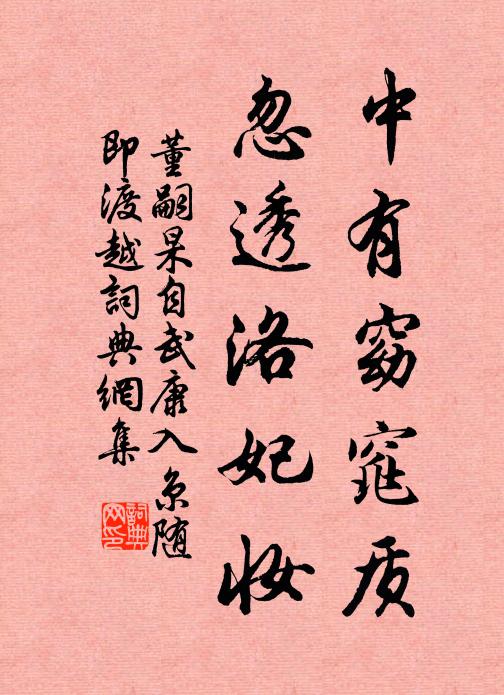 中有窈窕质
忽透洛妃妆
董嗣杲自武康入京随
即渡越詞典網集
詞典
网印